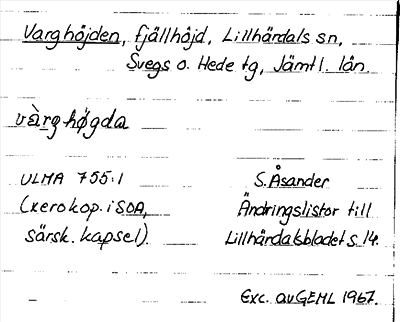 Varghöjden, fjällhöjd, Lillhärdals sn,
Svegs o. Hede tg, Jämtl. län.
vàrghøgda
ULMA 755:1
(xerokop. i SOA,
särsk. kapsel).
S. Åsander
Ändringslistor till
Lillhärdalsbladet s. 14.
Exc. av GEHL 1967.